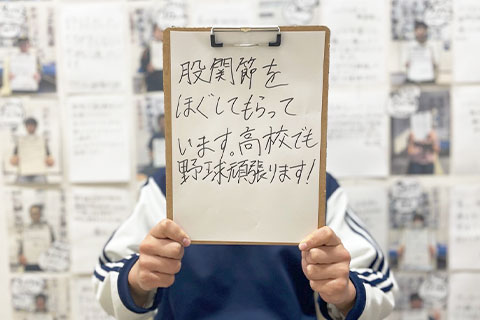 股関節を
ほぐしてもらって
います。高校でも
野球頑張ります!